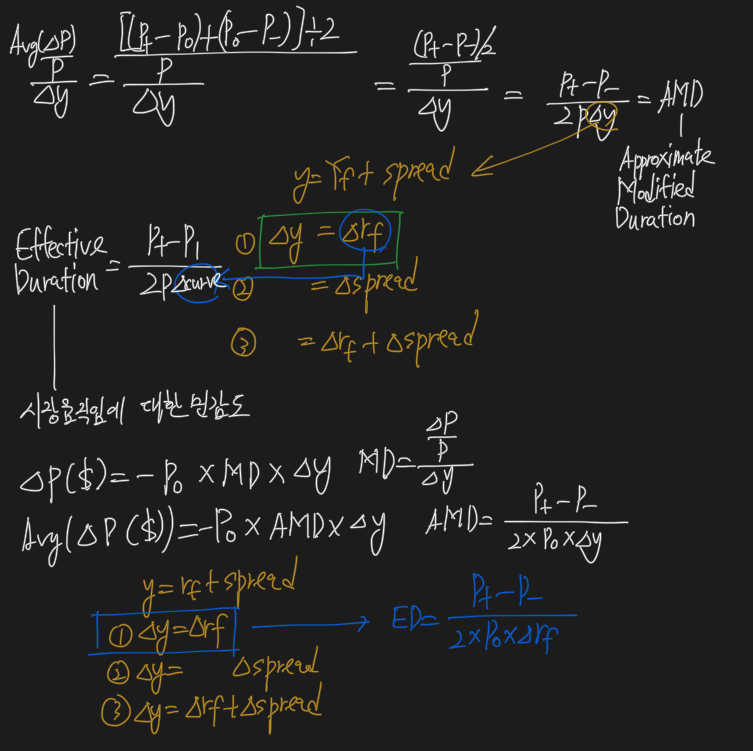 Avg(ΔP)/P / Δy = [(P+ - P0) + (P0 - P-)] ÷ 2 / P / Δy = (P+ - P-)/2 / P / Δy = P+ - P- / 2PΔy = AMD
Approximate
Modified
Duration
y = rf + spread
Effective
Duration = P+ - P1 / 2PΔcurve
① Δy = Δrf
② = Δspread
③ = Δrf + Δspread
시장움직임에 대한 민감도
ΔP($) = - P0 × MD × Δy MD = ΔP / P / Δy
Avg(ΔP($)) = - P0 × AMD × Δy AMD = P+ - P- / 2 × P0 × Δy
y = rf + spread
① Δy = Δrf → ED = P+ - P- / 2 × P0 × Δrf
② Δy = Δspread
③ Δy = Δrf + Δspread